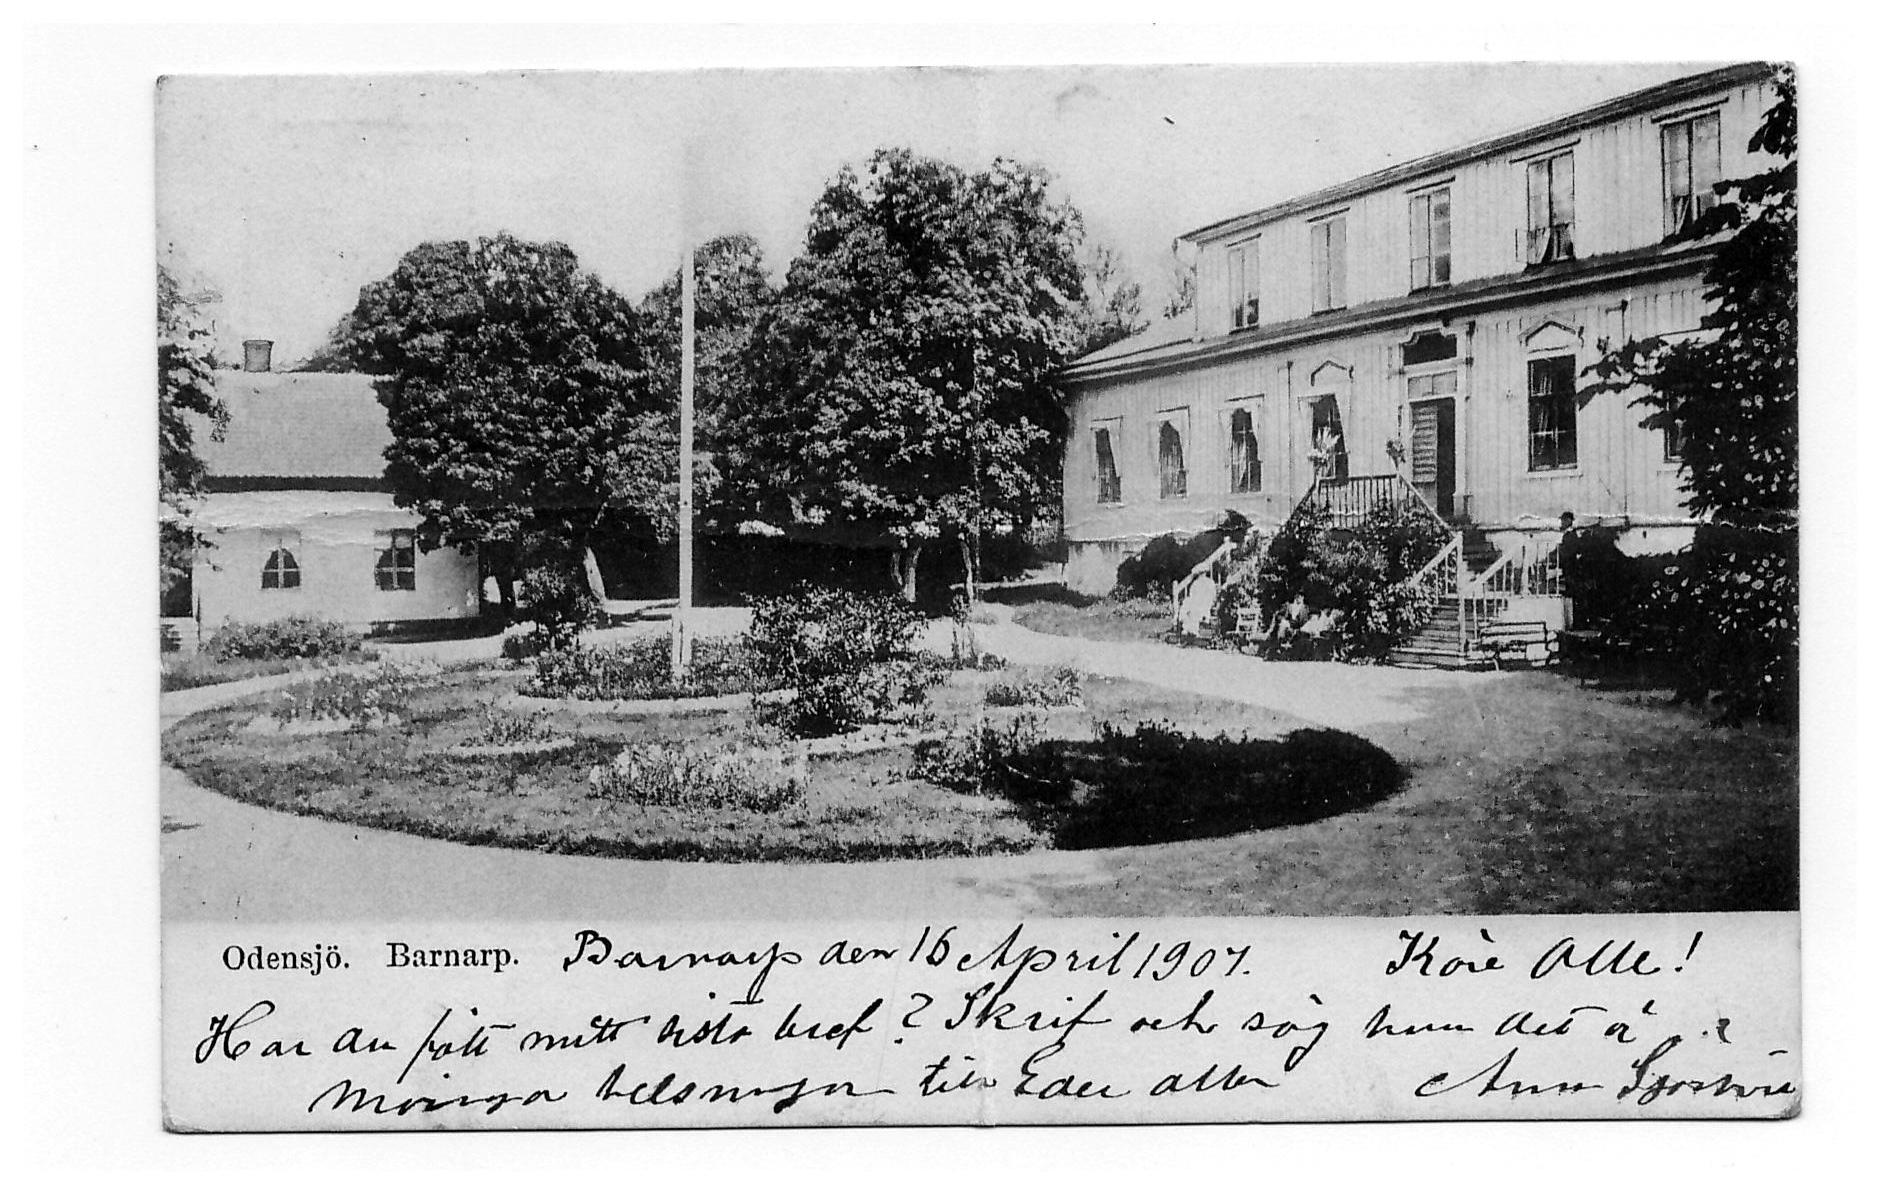 Odensjö. Barnarp. Barnarp den 16 April 1907. Käre Olle!
Har du fått mitt sista bref? Skrif och säg hur det är.
Många helsningar till Eder alla Anna